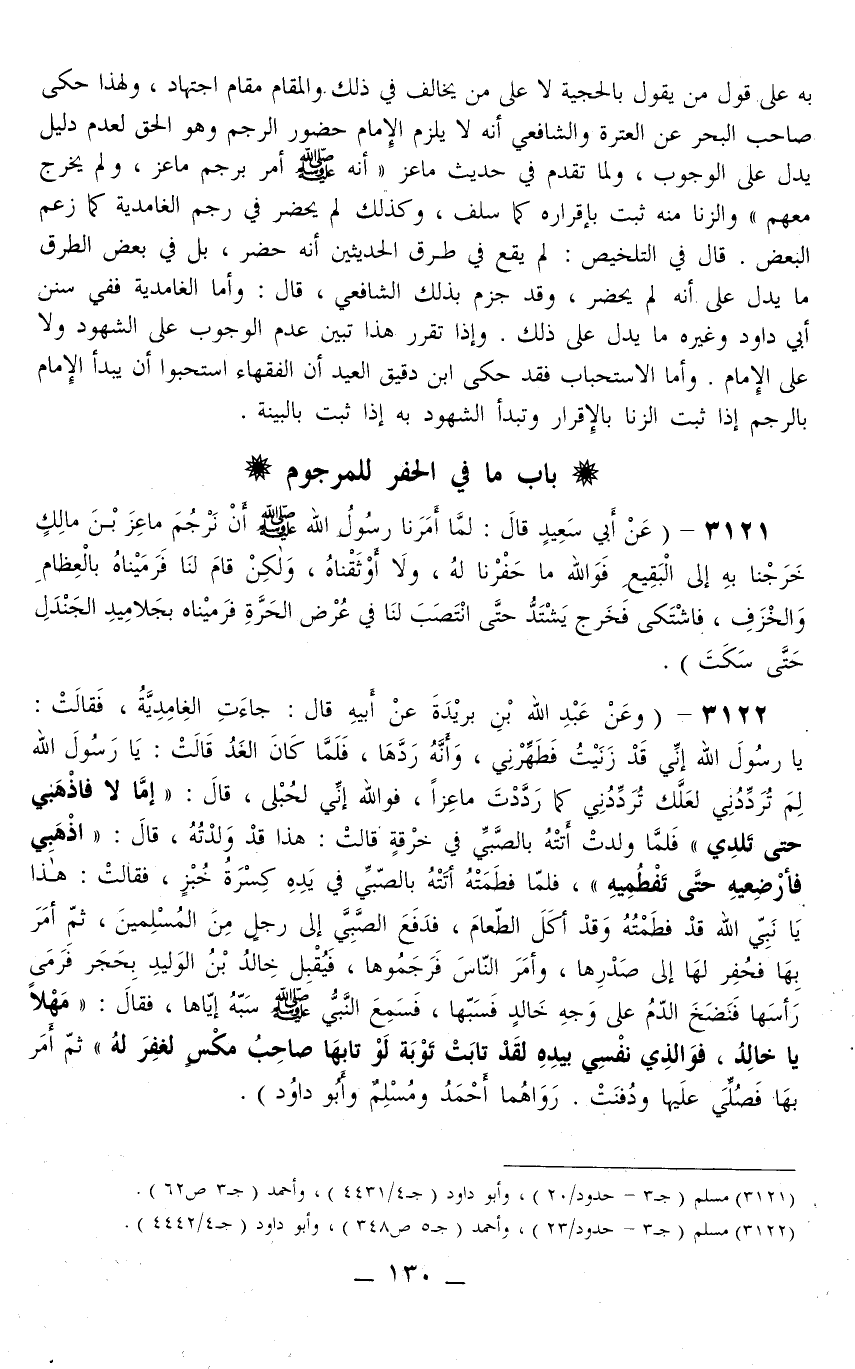 به على قول من يقول بالحجية لا على من يخالف في ذلك . والمقام مقام اجتهاد ، ولهذا حكى
صاحب البحر عن العترة والشافعي أنه لا يلزم الإمام حضور الرجم وهو الحق لعدم دليل
يدل على الوجوب ، ولما تقدم في حديث ماعز « أنه ﷺ أمر برجم ماعز ، ولم يخرج
معهم » والزنا منه ثبت بإقراره كما سلف ، وكذلك لم يحضر في رجم الغامدية كما زعم
البعض . قال في التلخيص : لم يقع في طرق الحديثين أنه حضر ، بل في بعض الطرق
ما يدل على أنه لم يحضر ، وقد جزم بذلك الشافعي ، قال : وأما الغامدية ففي سنن
أبي داود وغيره ما يدل على ذلك . وإذا تقرر هذا تبين عدم الوجوب على الشهود ولا
على الإمام . وأما الاستحباب فقد حكى ابن دقيق العيد أن الفقهاء استحبوا أن يبدأ الإمام
بالرجم إذا ثبت الزنا بالإقرار وتبدأ الشهود به إذا ثبت بالبينة .
باب ما في الحفر للمرجوم
٣١٢١ – ( عَنْ أَبي سَعِيدٍ قالَ : لمَّا أَمَرَنا رسولُ الله ﷺ أَنْ نَرْجُمَ ماعِزَ بْنَ مالِكٍ
خَرَجْنا بهِ إلى الْبَقِيعِ فَوَالله ما حَفَرْنا لهُ ، ولَا أَوْثَقْناهُ ، وَلٰكِنْ قامَ لنَا فَرَمَيْناهُ بالْعِظامِ
وَالخْزَفِ ، فاشْتَكى فَخَرج يَشْتَدُّ حتَّى انْتَصَبَ لنَا في عُرْضِ الحَرَّةِ فرَميْناه بجَلاميِدِ الجَنْدَلِ
حَتَّى سَكَتَ ) .
٣١٢٢ – ( وعَنْ عَبْدِ الله بْنِ بريْدَةَ عنْ أَبيهِ قال : جاءَتِ الغِامِدِيَّةُ ، فَقالَتْ :
يا رسُولَ الله إنِّي قَدْ زَنَيْتُ فَطَهِّرْنِي ، وَأَنَّهُ رَدَّهَا ، فَلَمَّا كَانَ الغَدُ قَالَتْ : يَا رَسُولَ الله
لِمَ تُرَدِّدُني لعَلَّك تُرَدِّدُنِي كما رَدَّدْتَ ماعِزاً ، فوالله إنِّي لحُبْلى ، قالَ : « إمَّا لا فاذْهَبي
حتى تَلدِي » فَلمَّا ولدتْ أَتتْهُ بالصَّبِيِّ في خرْقةٍ قالتْ : هذا قدْ وَلدْتُهُ ، قالَ : « اذْهَبِي
فأرْضِعيهِ حتَّى تَفْطُميهِ » ، فلمّا فطَمَتْهُ أتَتْهُ بالصّبيِّ في يَدِهِ كِسْرَةُ خُبْزٍ ، فقالتْ : هٰذا
يَا نَبِيَّ الله قدْ فطَمْتُهُ وَقدْ أكَلَ الطّعامَ ، فدَفَعَ الصَّبِيَّ إلى رجلٍ مِنَ المُسْلِمينَ ، ثمّ أمَرَ
بِهَا فحُفِر لهَا إلى صَدْرِها ، وأمَرَ النّاسَ فَرَجَمُوها ، فَيُقْبِل خالِدُ بْنُ الوَليدِ بِحَجَر فَرَمَى
رَأسَها فَنَضخَ الدّمُ على وَجهِ خالدٍ فَسَبّها ، فَسَمِعَ النَّبيُّ ﷺ سَبّهُ إيّاها ، فقالَ : « مَهْلاً
يا خالِدُ ، فوَالذِي نفْسي بيدِهِ لقَدْ تابَتْ تَوْبَة لَوْ تابهَا صاحِبُ مكْسٍ لغفِرَ لهُ » ثمّ أَمَر
بهَا فَصُلِّيَ علَيها ودُفنَتْ . رَوَاهُما أَحْمَدُ ومُسْلِمٌ وأَبُو داوُد ) .
(٣١٢١) مسلم ( جـ٣ – حدود/٢٠ ) ، وأبو داود ( جـ٤/٤٤٣١ ) ، وأحمد ( جـ٣ ص٦٢ ) .
(٣١٢٢) مسلم ( جـ٣ – حدود/٢٣ ) ، وأحمد ( جـ٥ ص٣٤٨ ) ، وأبو داود ( جـ٤/٤٤٤٢ ) .
– ١٣٠ –